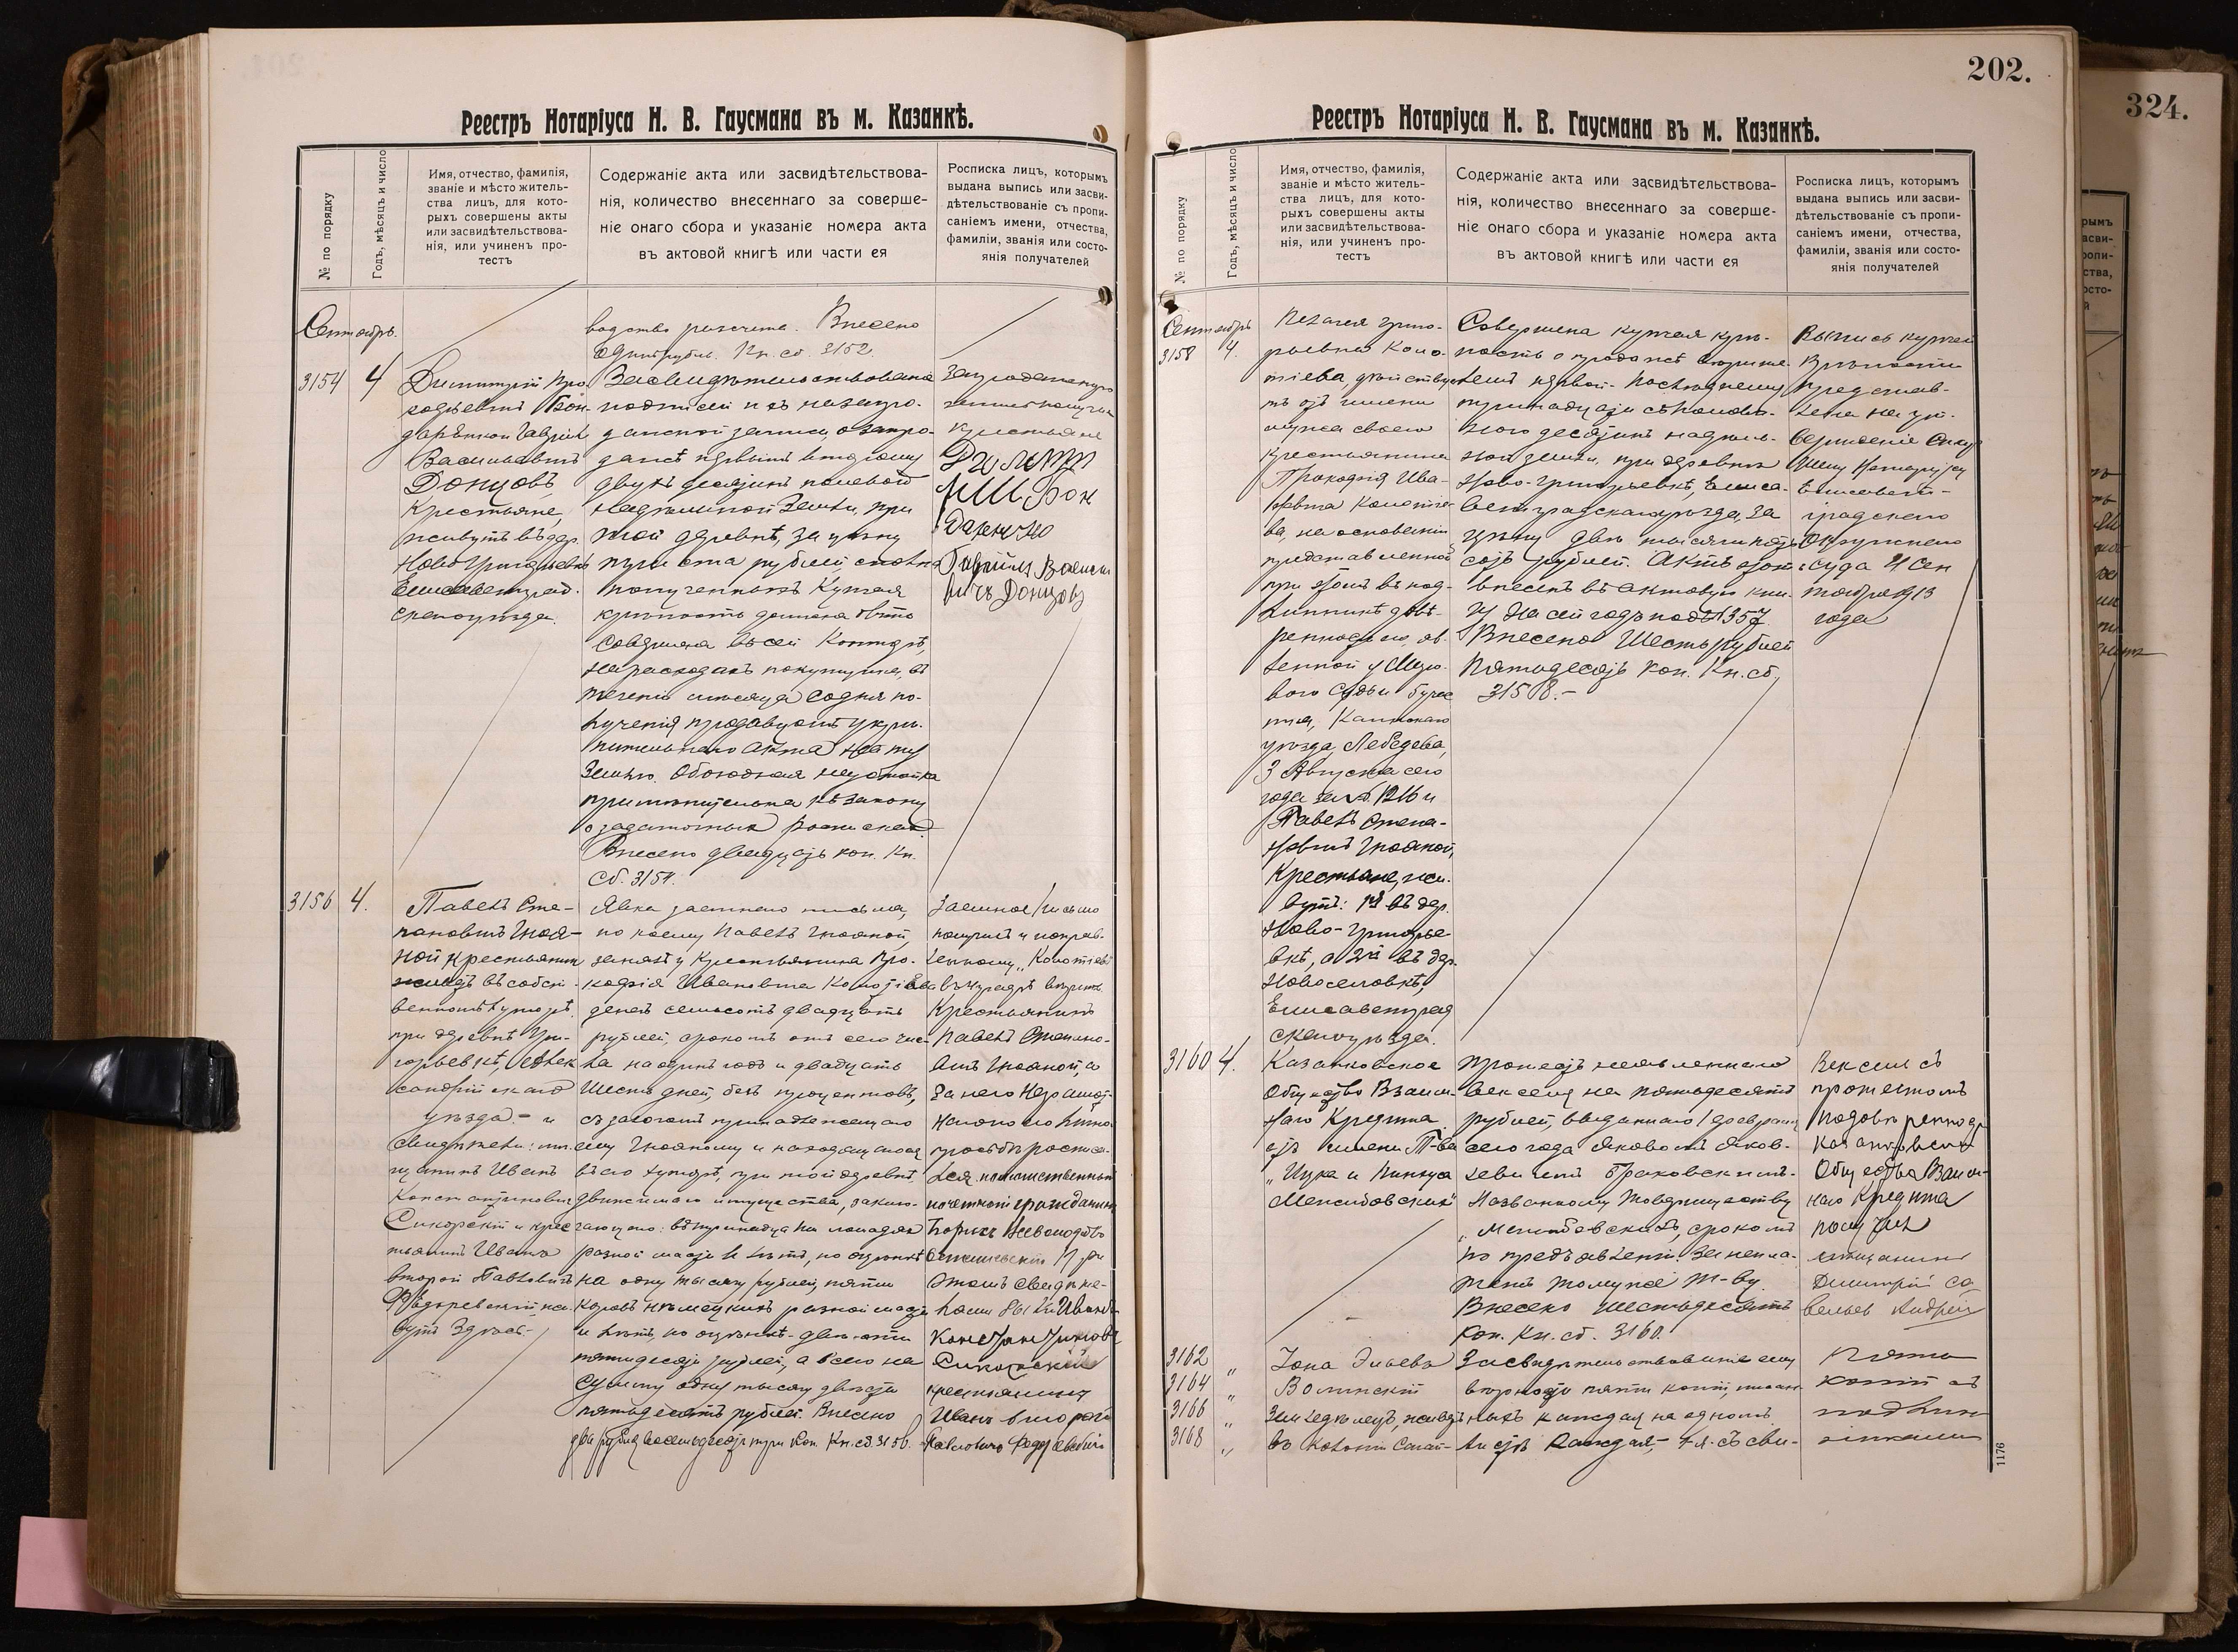 Реестръ Нотаріуса Н. В. Гаусмана въ м. Казанкѣ.
№ по порядку
Годъ, мѣсяцъ и число
Имя, отчество, фамилія,
званіе и мѣсто житель-
ства лицъ, для кото-
рыхъ совершены акты
или засвидѣтельствова-
нія, или учиненъ про-
тестъ
Содержаніе акта или засвидѣтельствова-
нія, количество внесеннаго за соверше-
ніе онаго сбора и указаніе номера акта
въ актовой книгѣ или части ея
Росписка лицъ, которымъ
выдана выпись или засви-
дѣтельствованіе съ пропи-
саніемъ имени, отчества,
фамиліи, званія или состо-
янія получателей
Сентябрь.
водство разсчета. Внесено
одинъ рубль. Кн. сб. 3152.
3154
4
Димитрій Про-
кофьевичъ Бон-
даренко и Гавріилъ
Васильевичъ
Донцовъ,
Крестьяне,
живутъ въ дер.
Ново-Григорьевкѣ
Елисаветград-
скаго уѣзда.
Засвидѣтельствована
подписей ихъ на запро-
дажной записи, о запро-
дажѣ первымъ второму
двухъ десятинъ полевой
надѣльной земли, при
той деревнѣ, за цѣну
триста рублей сполна
полученныхъ. Купчая
крѣпость должна быть
совершена въ сей Конторѣ,
на расходахъ покупщика, въ
теченіи мѣсяца со дня по-
лученія продавцомъ укрѣ-
пительнаго акта на ту
землю. Обоюдная неустойка
примѣнительна къ закону
о задаточныхъ роспискахъ.
Внесено двадцать коп. Кн.
сб. 3154.
Запродажную
запись получили
крестьяне
Димитрій Бон
даренко
Гавріилъ Васильи
вичъ Донцовъ
3156
4.
Павелъ Сте-
пановичъ Гноя-
ной крестьянинъ
живетъ въ собст-
венномъ хуторѣ,
при деревнѣ Гри-
горьевкѣ, Алек-
сандрійскаго
уѣзда - и
Свидѣтели: мѣ-
щанинъ Иванъ
Константиновичъ
Сикорскій и крес-
тьянинъ Иванъ
второй Павловичъ
живутъ здѣсь.
Явка заемнаго письма,
по коему Павелъ Гнояной,
занялъ у Крестьянина Про-
кофія Ивановича Колотіева
денегъ семьсотъ двадцать
рублей, срокомъ отъ сего чис-
ла на одинъ годъ и двадцать
шесть дней, безъ процентовъ,
съ залогомъ принадлежащаго
ему Гнояному и находящагося
въ его хуторѣ, при той деревнѣ,
движимаго имущества, заклю-
чающаго: въ тринадцати лошадяхъ
разной масти и лѣтъ, по оцѣнкѣ
на одну тысячу рублей, пяти
коровъ нѣмецкихъ разной масти
и лѣтъ, по оцѣнкѣ - двѣсти
пятьдесятъ рублей, а всего на
сумму одну тысячу двѣсти
пятьдесятъ рублей. Внесено
два рубля восемьдесятъ три коп. Кн. сб. 3156.
Заемное письмо
получилъ и поправ-
ленному „Колотіева“
вѣрить
Крестьянинъ
Павелъ Степано-
вичъ Гнояной, а
за него неграмот-
наго по его личной
просьбѣ росписал-
ся потомственный
почетный гражданинъ
Борисъ Всеволодовъ
При
этомъ свидѣте-
лями были Иванъ
Константиновъ
Сикорскій
крестьянинъ
Иванъ второй
Павловичъ
202.
Реестръ Нотаріуса Н. В. Гаусмана въ м. Казанкѣ.
№ по порядку
Годъ, мѣсяцъ и число
Имя, отчество, фамилія,
званіе и мѣсто житель-
ства лицъ, для кото-
рыхъ совершены акты
или засвидѣтельствова-
нія, или учиненъ про-
тестъ
Содержаніе акта или засвидѣтельствова-
нія, количество внесеннаго за соверше-
ніе онаго сбора и указаніе номера акта
въ актовой книгѣ или части ея
Росписка лицъ, которымъ
выдана выпись или засви-
дѣтельствованіе съ пропи-
саніемъ имени, отчества,
фамиліи, званія или состо-
янія получателей
Сентябрь
3158
4.
Пелагея Григо-
рьевна Коло-
тіева, дѣйствуе-
тъ отъ имени
мужа своего
крестьянина
Прокофія Ива-
новича Колотіе-
ва, на основаніи
представленной
при этомъ въ под-
линникѣ довѣ-
ренности, яв-
ленной у Миро-
вого Судьи
уѣзда, Лебедева,
3 Августа сего
года за № 1216 и
Павелъ Степа-
новичъ Гнояной,
Крестьяне, жи-
вутъ: 1я въ дер.
Ново-Григорье-
вкѣ, а 2й въ дер.
Новоселовкѣ,
Елисаветград
скаго уѣзда.
Совершена купчая крѣ-
пость о продажѣ вторы-
мъ первой
надѣль-
ной земли, при деревнѣ
Ново-Григорьевкѣ, Елиса-
ветградскаго уѣзда, за
цѣну двѣ тысячи пять
сотъ рублей. Актъ этотъ
внесенъ въ актовую кни-
гу на сей годъ подъ № 357.
Внесено шесть рублей
пятьдесятъ коп. Кн. сб.,
3158.-
Выпись купчей
крѣпости
представ-
лена на ут-
вержденіе Стар-
шему Нотаріусу
Елисавет-
градскаго
Окружнаго
Суда 4 Сен
тября 1913
года
3160
4.
Казанковское
Общество Взаим-
наго Кредита
отъ имени Т-ва
„Ицка и Пинхуса
Менсиовскихъ“
Протестъ неявленнаго
векселя на пятьдесятъ
рублей, выданнаго 1 февраля
сего года Яковомъ Яков-
левичемъ Браковскимъ
названному Товариществу
срокомъ
по предъявленіи. За непла-
тежъ тому же Т-ву
Внесено шестьдесятъ
коп. Кн. сб. 3160.
Вексель съ
протестомъ
по довѣренности
Казанковскаго
Общества Взаим-
наго Кредита
получилъ
мѣщанинъ
Димитрій Са
вельевъ
3162
3164
3166
3168
„
„
„
„
Іона
Волынскій
живетъ
въ колоніи
Засвидѣтельствованіе ему
вѣрности пяти копій, писан-
ныхъ каждая на одномъ
листѣ каждая, съ сви-
Пять
копій съ
подлин
никами
1176
324.
рымъ
асви-
опи-
ства,
осто-
й